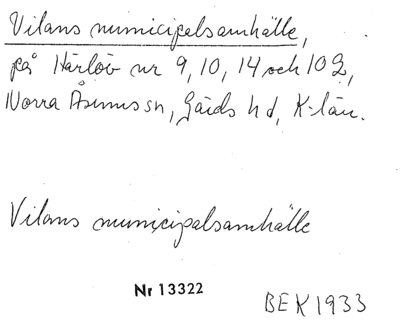 Vilans municipalsamhälle,
på Härlöv nr 9, 10, 14 och 102,
Norra Åsums sn, Gärds hd, K-län.
Vilans municipalsamhälle
Nr 13322
BEK 1933